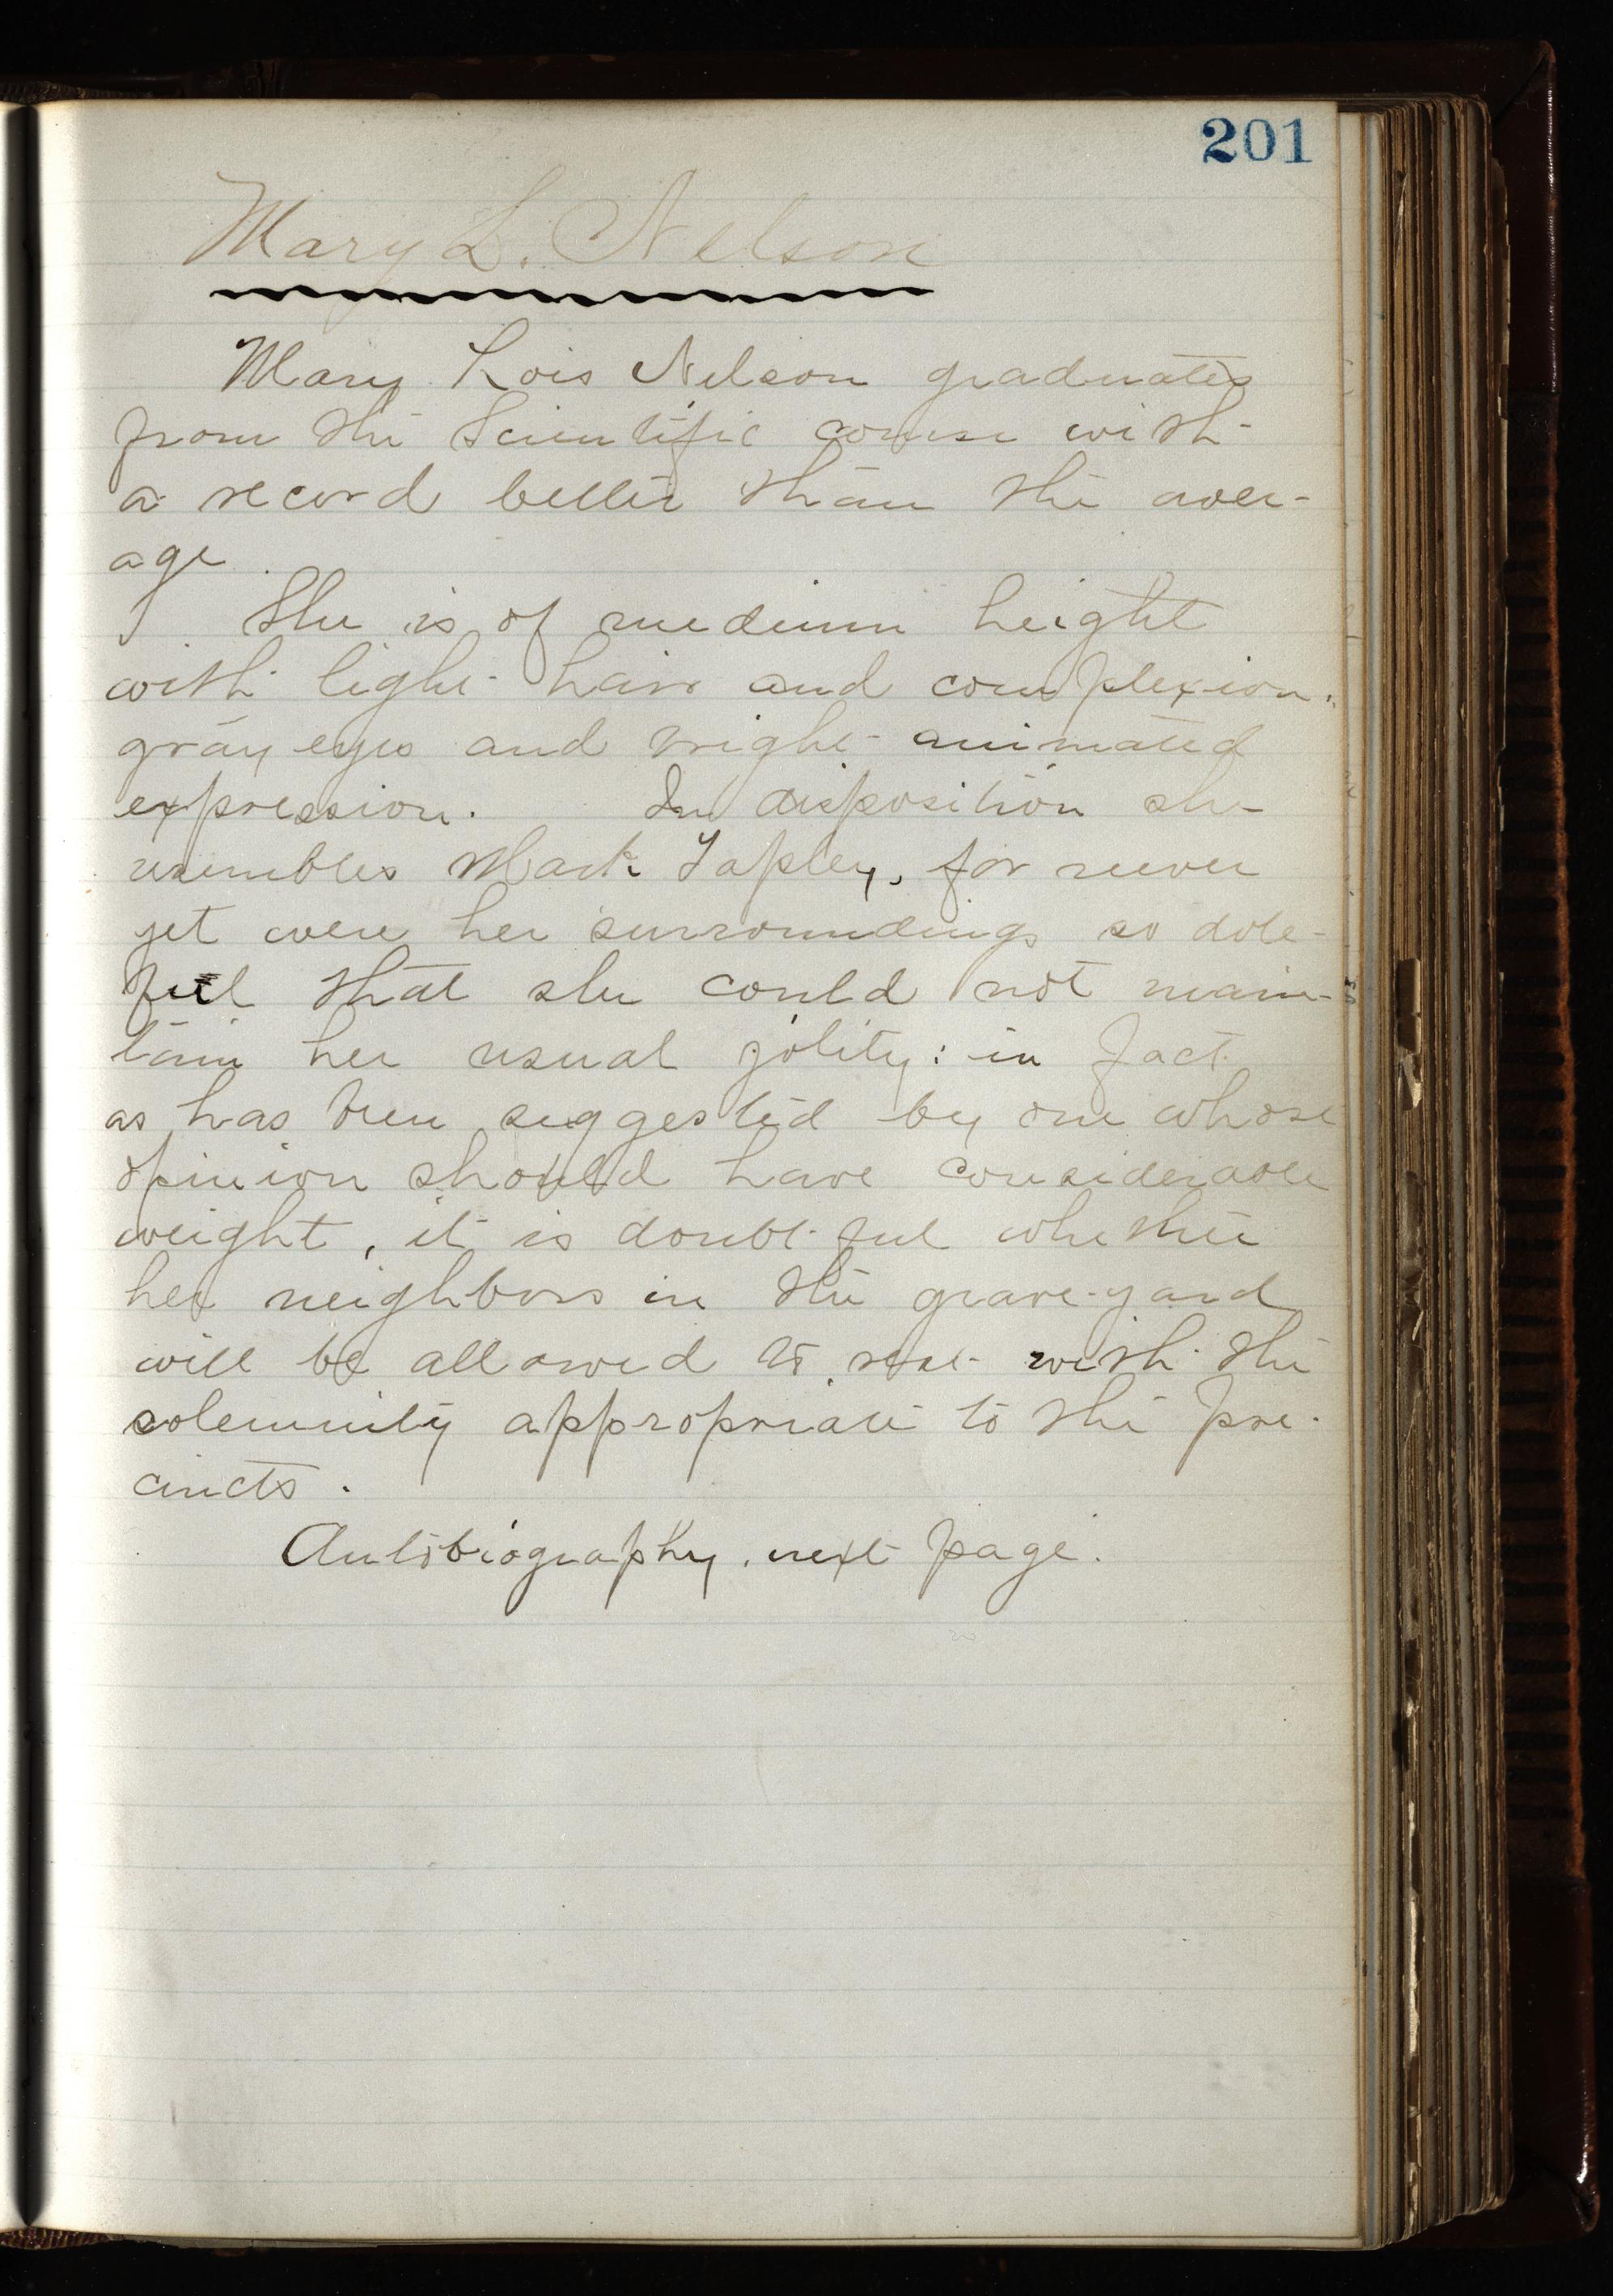 201
Mary L. Nelson
Mary Lois Nelson graduates
from the Scientific course with
a record better than the aver-
age.
She is of medium height
with light hair and complexion,
gray eyes and bright animated
expression. In disposition she
resembles Mark Tapley, for never
yet were her surroundings so dole-
ful that she could not main-
tain her usual jolity: in fact
as has been suggested by one whose
opinion should have considerable
weight, it is doubtful whether
her neighbors in the grave-yard
will be allowed to rest with the
solemnity appropriate to the pre-
cincts.
Autobiography, next page.